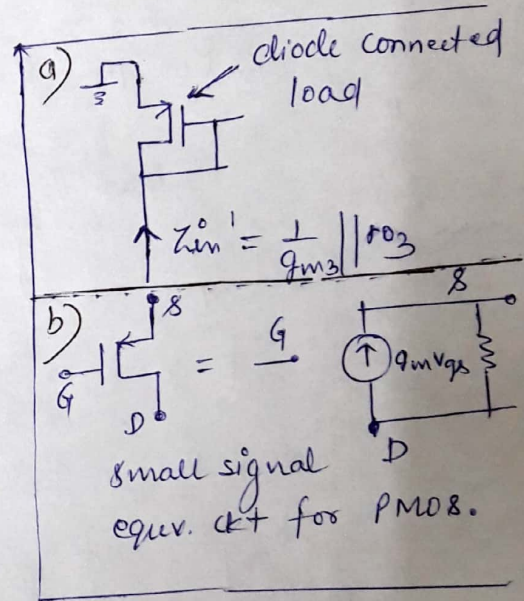 a)
diode connected
load
Zin' = 1/gm3 || ro3
b)
S
G
D
=
G
S
gmvgs
D
small signal
equv. ckt for PMOS.